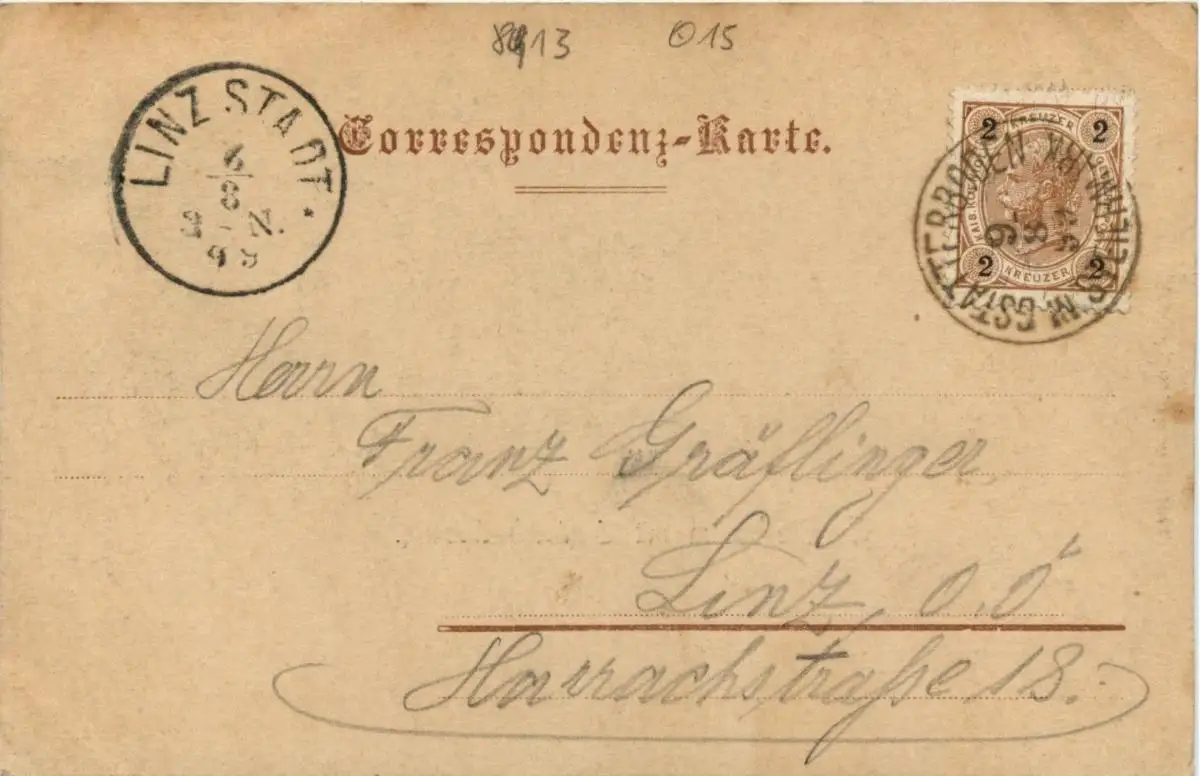 8913 015
LINZ STADT
8
3 - N.
99
Correspondenz-Karte.
2 KREUZER 2
2 KREUZER 2
GSTATTERBODEN IN STEIERMARK
9
8
99
Herrn
Franz Gräflinger
Linz, O.Ö
Harrachstraße 18.